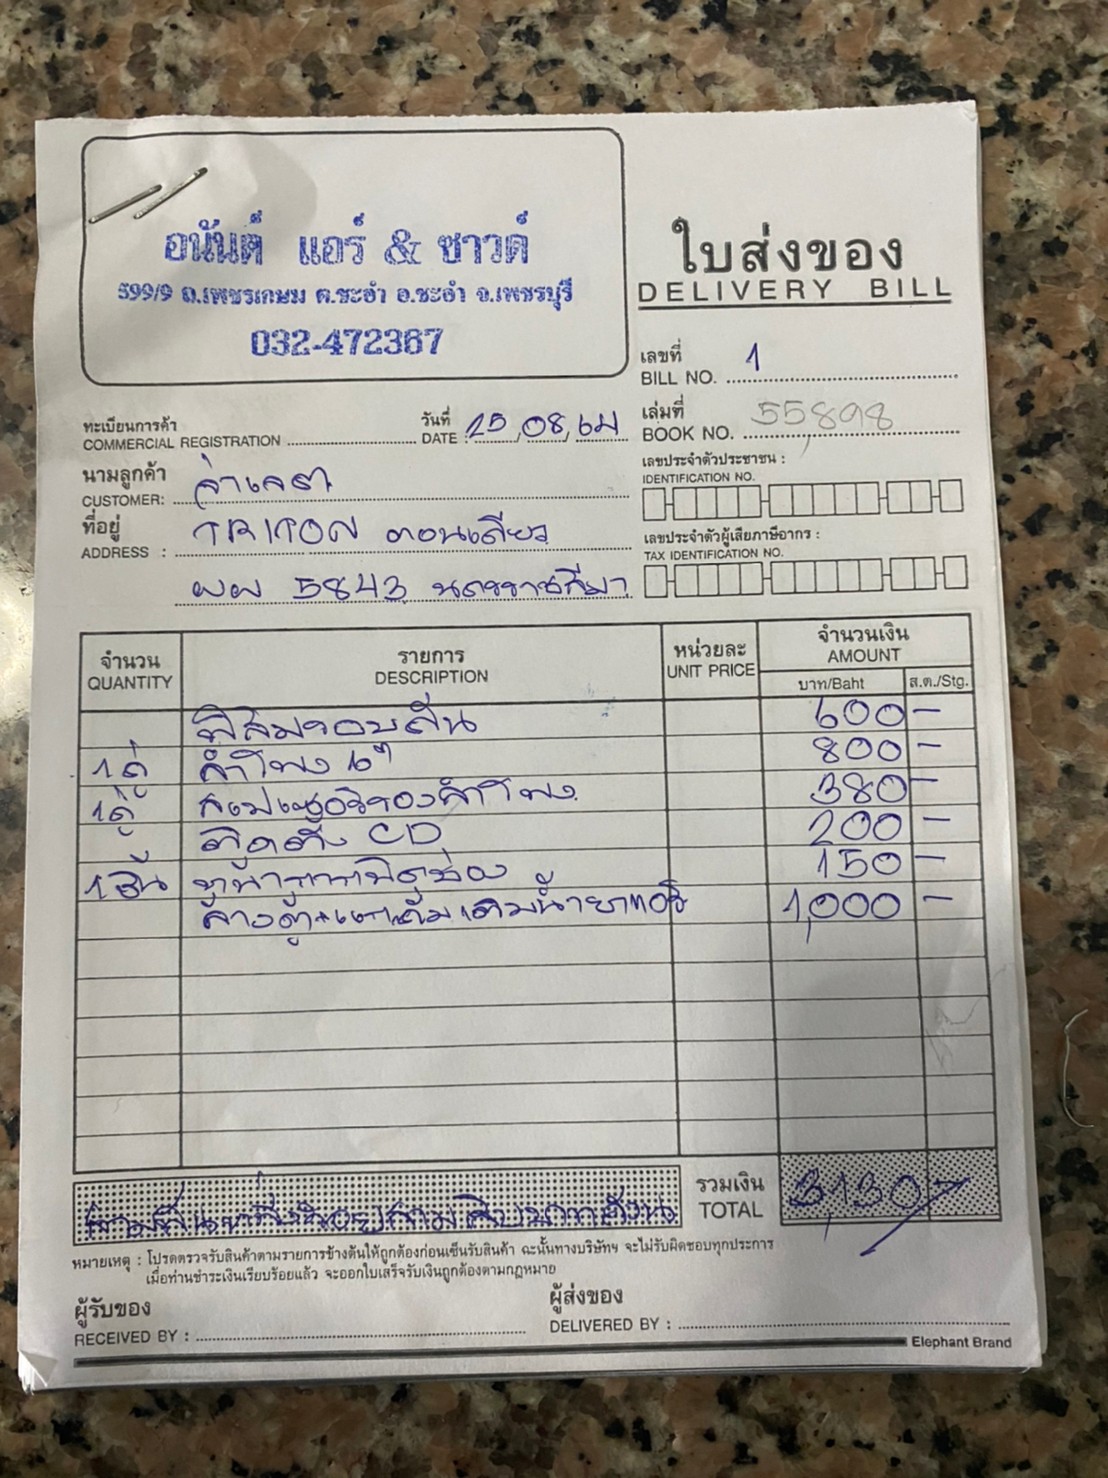 อนันต์ แอร์ & ซาวด์
599/9 ถ.เพชรเกษม ต.ชะอำ อ.ชะอำ จ.เพชรบุรี
032-472367
ใบส่งของ
DELIVERY BILL
เลขที่ 1
BILL NO.
ทะเบียนการค้า
COMMERCIAL REGISTRATION
วันที่
DATE 25,08,64
เล่มที่ 55,898
BOOK NO.
นามลูกค้า
CUSTOMER:
ที่อยู่ TRITON ตอนเดียว
ADDRESS :
ผผ 5843 นครราชสีมา
เลขประจำตัวประชาชน :
IDENTIFICATION NO.
เลขประจำตัวผู้เสียภาษีอากร :
TAX IDENTIFICATION NO.
จำนวน รายการ หน่วยละ จำนวนเงิน
QUANTITY DESCRIPTION UNIT PRICE AMOUNT
บาท/Baht ส.ต./Stg.
ฟิล์มรอบคัน 600 -
1 คู่ ลำโพง 6" 800 -
1 คู่ สเปเซอร์รองลำโพง 380 -
ติดตั้ง CD 200 -
1 อัน 150 -
ล้างตู้ เติมน้ำยาแอร์ 1,000 -
รวมเงิน 3,130 -
TOTAL
สามพันหนึ่งร้อยสามสิบบาทถ้วน
หมายเหตุ : โปรดตรวจรับสินค้าตามรายการข้างต้นให้ถูกต้องก่อนเซ็นรับสินค้า ฉะนั้นทางบริษัทฯ จะไม่รับผิดชอบทุกประการ
เมื่อท่านชำระเงินเรียบร้อยแล้ว จะออกใบเสร็จรับเงินถูกต้องตามกฎหมาย
ผู้รับของ
RECEIVED BY :
ผู้ส่งของ
DELIVERED BY :
Elephant Brand